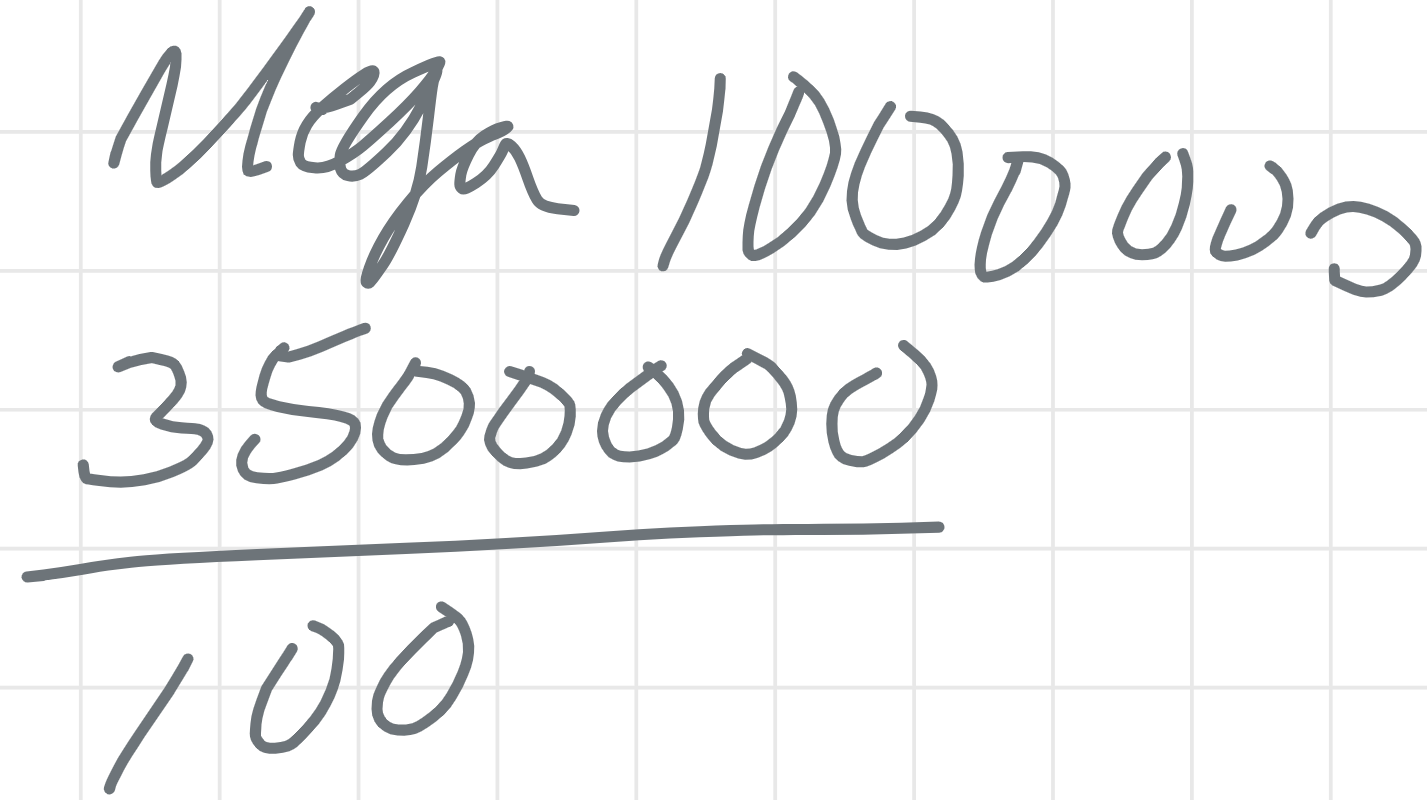 Mega 1000000
3500000
100